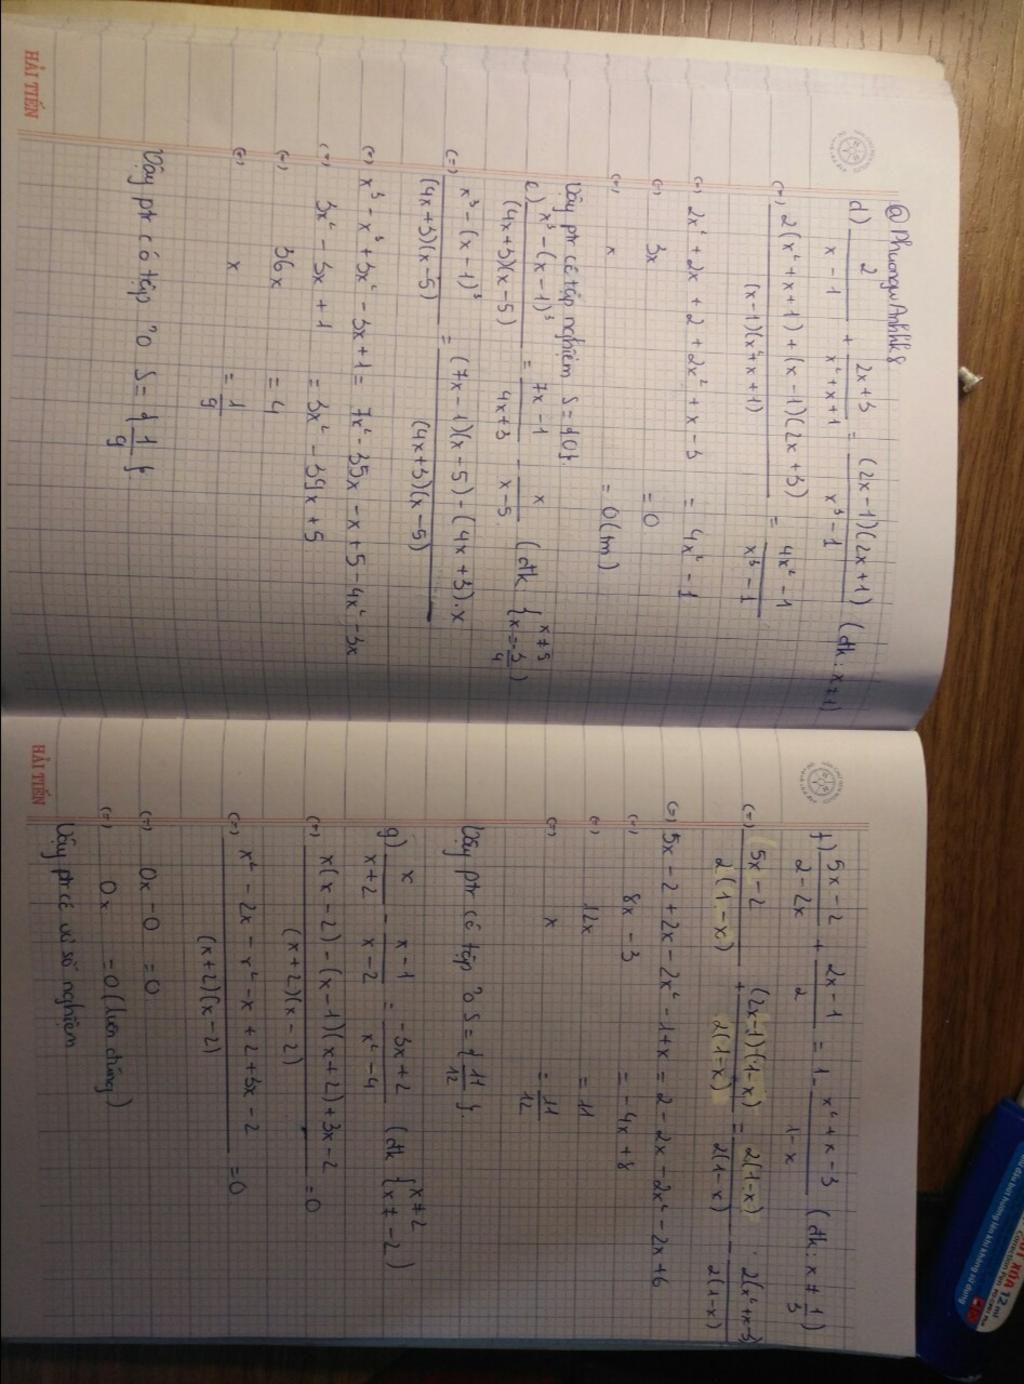 @PhuonguAnhhk8
d) 2/(x-1) + (2x+3)/(x²+x+1) = (2x-1)(2x+1)/(x³-1) (đk: x≠1)
(=) (2(x²+x+1)+(x-1)(2x+3))/((x-1)(x²+x+1)) = (4x²-1)/(x³-1)
(=) 2x²+2x+2+2x²+x-3 = 4x²-1
(=) 3x = 0
(=) x = 0(tm)
Vậy ptr có tập nghiệm S={0}.
e) (x³-(x-1)³)/((4x+3)(x-5)) = (7x-1)/(4x+3) - x/(x-5) (đk: {x≠5 x=-3/4)
(=) (x³-(x-1)³)/((4x+3)(x-5)) = ((7x-1)(x-5)-(4x+3).x)/((4x+3)(x-5))
(=) x³-x³+3x²-3x+1 = 7x²-35x-x+5-4x²-3x
(=) 3x²-3x+1 = 3x²-39x+5
(=) 36x = 4
(=) x = 1/9
Vậy ptr có tập n⁰ S={1/9}.
HẢI TIẾN
f) (5x-2)/(2-2x) + (2x-1)/2 = 1 - (x²+x-3)/(1-x) (đk: x≠1/3)
(=) (5x-2)/(2(1-x)) + (2x-1)(1-x)/(2(1-x)) = 2(1-x)/(2(1-x)) - 2(x²+x-3)/(2(1-x))
(=) 5x-2+2x-2x²-1+x = 2-2x-2x²-2x+6
(=) 8x-3 = -4x+8
(=) 12x = 11
(=) x = 11/12
Vậy ptr có tập n⁰ S={11/12}.
g) x/(x+2) - (x-1)/(x-2) = (-3x+2)/(x²-4) (đk {x≠2 x≠-2)
(=) (x(x-2)-(x-1)(x+2)+3x-2)/((x+2)(x-2)) = 0
(=) (x²-2x-x²-x+2+3x-2)/((x+2)(x-2)) = 0
(=) 0x-0 = 0
(=) 0x = 0 (luôn đúng)
Vậy ptr có vô số nghiệm
HẢI TIẾN
XÓA 12 ml